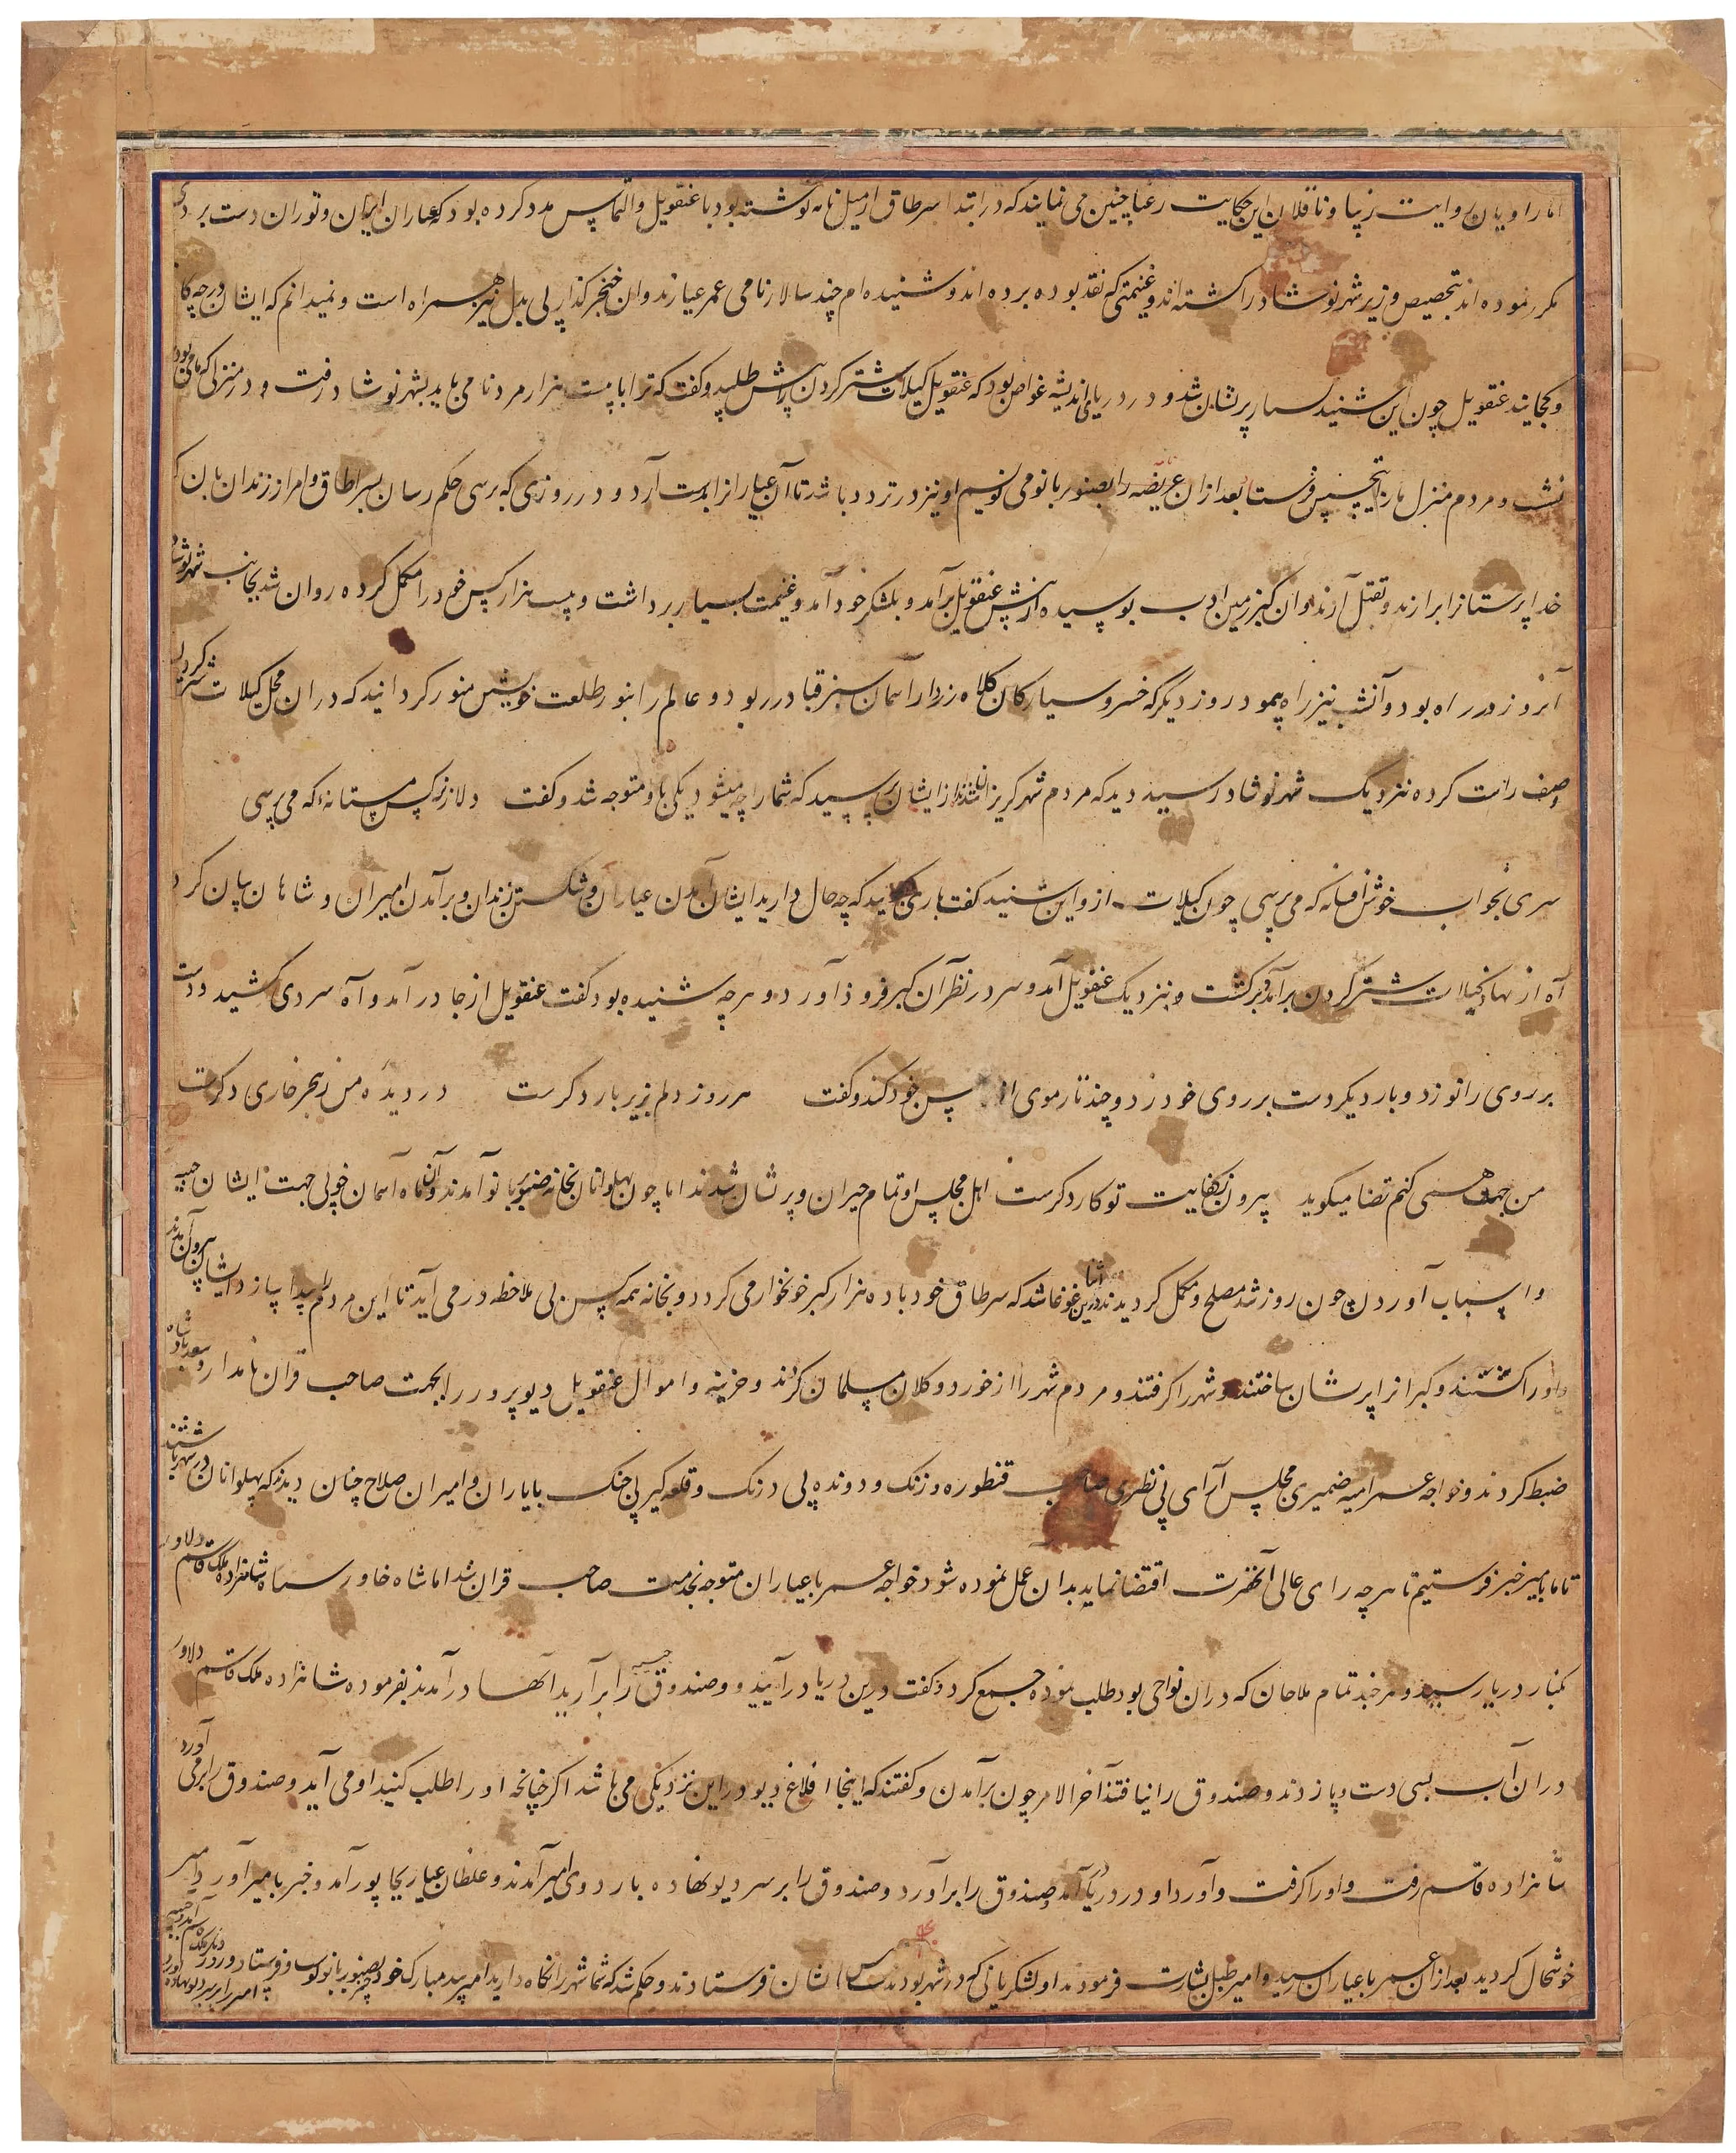 اما راویان روایت زیبا و ناقلان این حکایت رعنا چنین می نمایند که در ابتدا سرطاق ارمیل نامه نوشته بود با غنقویل و التماس مدد کرده بود که عیاران ایران و توران دست برد
مکرر نموده اند بتخصیص وزیر شهر نوشادر را کشته اند و غنیمتی که نقد بوده برده اند و شنیده ام چند سالار نامی عمر عیارند و آن خنجر گذار بی بدل نیز همراه است و نمیدانم که ایشان در چه کا
و کجایند غنقویل چون این شنید بسیار پریشان شد و در دریای اندیشه غواص بود که غنقویل کیلات شترگردن پیش طلبید و گفت که ترا با بیست هزار مرد نامی باید بشهر نوشادر رفت و در منزلی که
نشست و مردم منزل را بتجسس فرستاد بعد از آن عریضه را بصنوبر بانو می نویسم او نیز در تردد باشد تا آن عیار را بدست آرد و در روزی که برسی حکم رسان بسرطاق و امرا از زندان
خدا پرستانرا برآرند و بقتل آرند و آن گبر زمین ادب بوسیده از پیش غنقویل برآمد و بلشکر خود آمد و غنیمت بسیار برداشت و بیست هزار کس خود را مکمل کرده روان شد بجانب شهر نوشادر
آنروز در راه بود و آنشب نیز راه پیمود روز دیگر که خسرو سیارگان کلاه زردار آسمان سبز قبا در ربود و عالم را بنور طلعت خویش منور گردانید که دران محل کیلات شترگردن
صف راست کرده نزدیک شهر نوشادر رسید دید که مردم شهر گریزانند از ایشان پرسید که شما را چه میشود یکی باو متوجه شد و گفت دلا ز نرگس مستانه که می پرسی
سری بخواب خوش افسانه که می پرسی چون کیلات ازو این شنید گفت باری بگویید که چه حال دارید ایشان آمدن عیاران و شکستن زندان و برآمدن امیران و شاهان بیان کرد
آه از نهاد کیلات شترگردن برآمد و برگشت و بنزدیک غنقویل آمد و سر در نظر آن گبر فرود آورد و هرچه شنیده بود گفت غنقویل از جا درآمد و آه سردی کشید و دست
بر روی زانو زد و بار دیگر دست بر روی خود زد و چند تار موی از پس خود کند و گفت هر روز دلم بزیر بار دگرست در دیده من ز هجر خاری دگرست
من جهد همی کنم قضا میگوید بیرون ز کفایت تو کار دگرست اهل مجلس او تمام حیران و پریشان شدند اما چون پهلوانان بخانه صنوبر بانو آمدند و آن ماه آسمان خوبی جهت ایشان جیبه
و اسباب آوردن چون روز شد مصلح و مکمل گردیدند درین اثنا غوغا شد که سرطاق خود با ده هزار گبر خونخوار می گردد و بخانه همه کس بی ملاحظه در می آید تا این مردم را پیدا سازد ایشان بیرون آمدند
و او را کشتند و گبرانرا پریشان ساختند و شهر را گرفتند و مردم شهر را از خورد و کلان مسلمان کردند و خزینه و اموال غنقویل دیوپرور را بجهت صاحب قران نامدار و سعد پادشاه
ضبط کردند و خواجه عمر امیه ضمیری مجلس آرای بی نظری صاحب قنطوره و زنک و دونده بی درنک و قلعه گیر بی جنک با یاران و امیران صلاح چنان دیدند که پهلوانان در شهر باشند
تا ما بامیر خبر فرستیم تا هرچه رای عالی آنحضرت اقتضا نماید بدان عمل نموده شود خواجه عمر با عیاران متوجه بخدمت صاحب قران شد اما شاه خاور سپاه شاهزاده ملک قاسم دلاور
بکنار دریا رسید و هر چند تمام ملاحان که دران نواحی بود طلب نموده جمع کرد و گفت درین دریا درآیید و صندوق جیبه را برآرید آنها درآمدند بفرموده شاهزاده ملک قاسم دلاور
دران آب بسی دست و پا زدند و صندوق را نیافتند آخر الامر چون برآمدن و گفتند که اینجا افلاغ دیو درین نزدیکی می باشد اگر چنانچه او را طلب کنید او می آید و صندوق را برمی آورد
شاهزاده قاسم رفت و او را گرفت و آورد او در دریا درآمد و صندوق را برآورد و صندوق را بر سر دیو نهاده باردوی امیر آمدند و غلطان عیار بجابور آمد و خبر بامیر آورد امیر
خوشحال گردید بعد از آن عمر با عیاران رسید و امیر طبل بشارت فرمودند او لشکریانی که در شهر بودند کس بایشان فرستادند و حکم شد که شما شهر را نگاه دارید امیر پیر مبارک خود بصنوبر بانو فرستاد